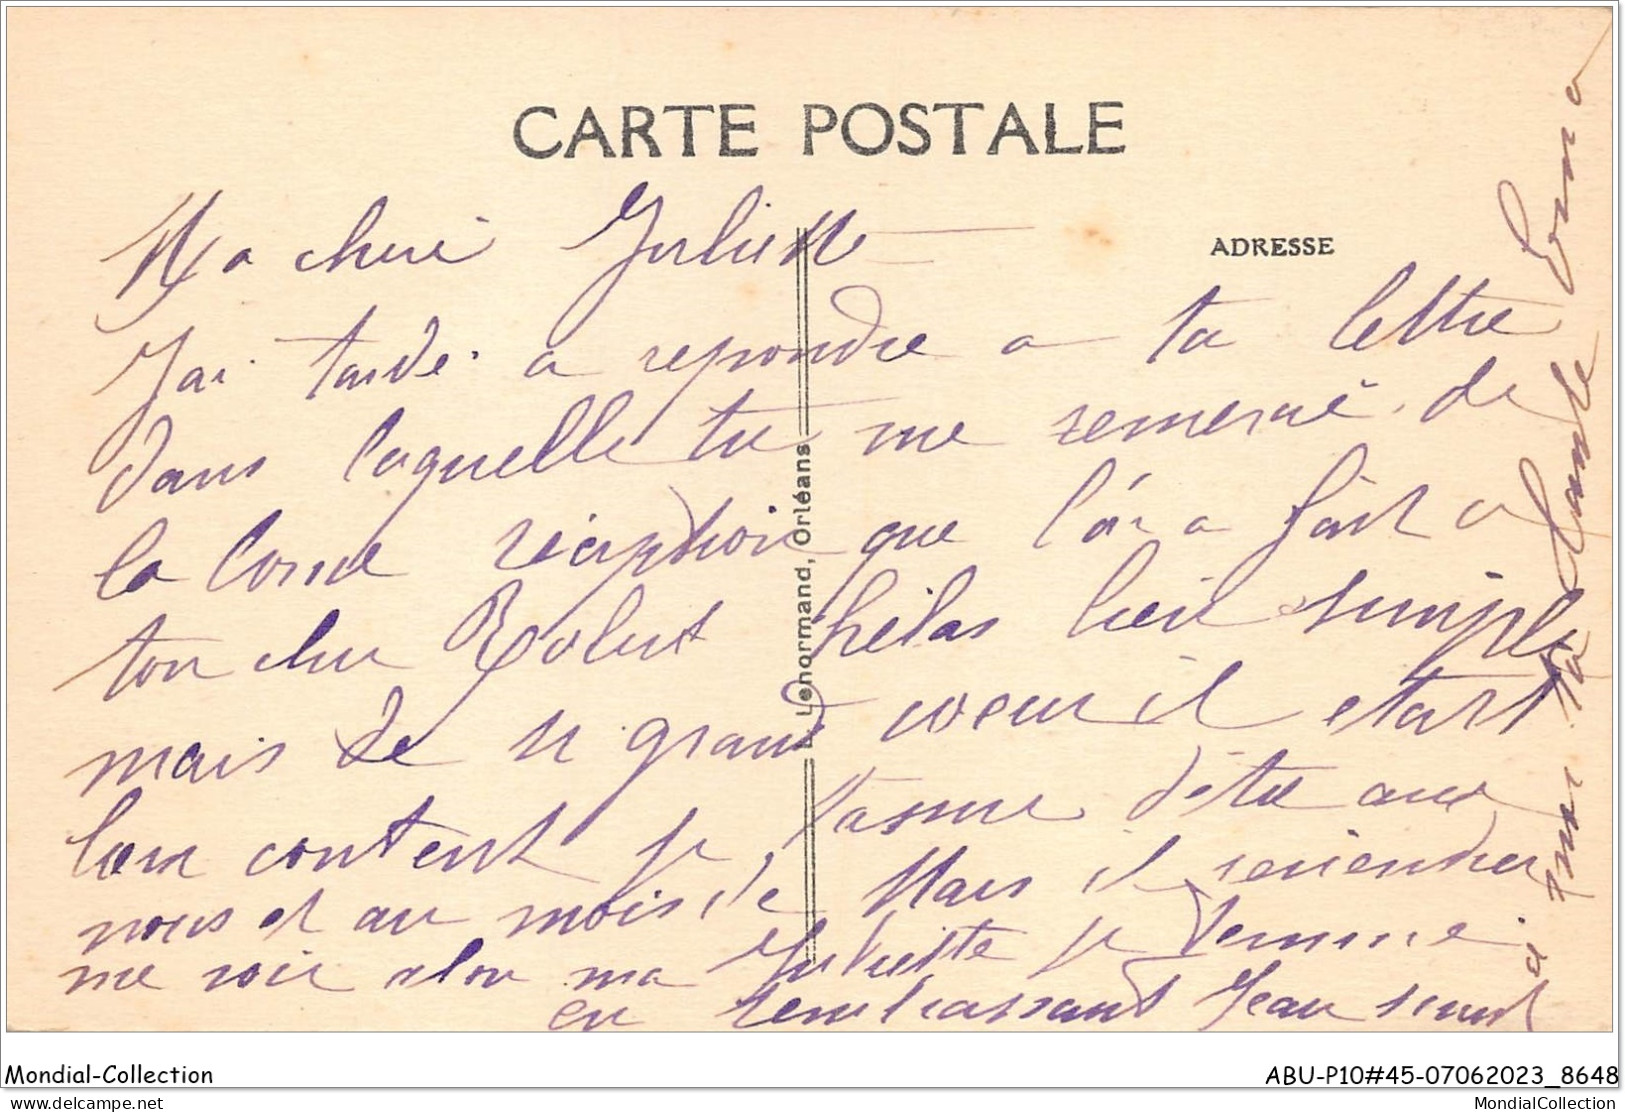 CARTE POSTALE
ADRESSE
Ma cheri Juliette
J'ai tardé a repondre a ta lettre
dans laquelle tu me remercié de
la bonne réception que l'on a fait a
ton cher Robert hélas bien simple
mais de si grand coeur il etait
bien content je t'assure d'être avec
nous et au mois de Mars il reviendra
me voir alor ma Juliette je termine
en t'embrassant Jean
pour ta tante
L. Lenormand, Orléans
Mondial-Collection
ABU-P10#45-07062023_8648
delcampe.net
MondialCollection